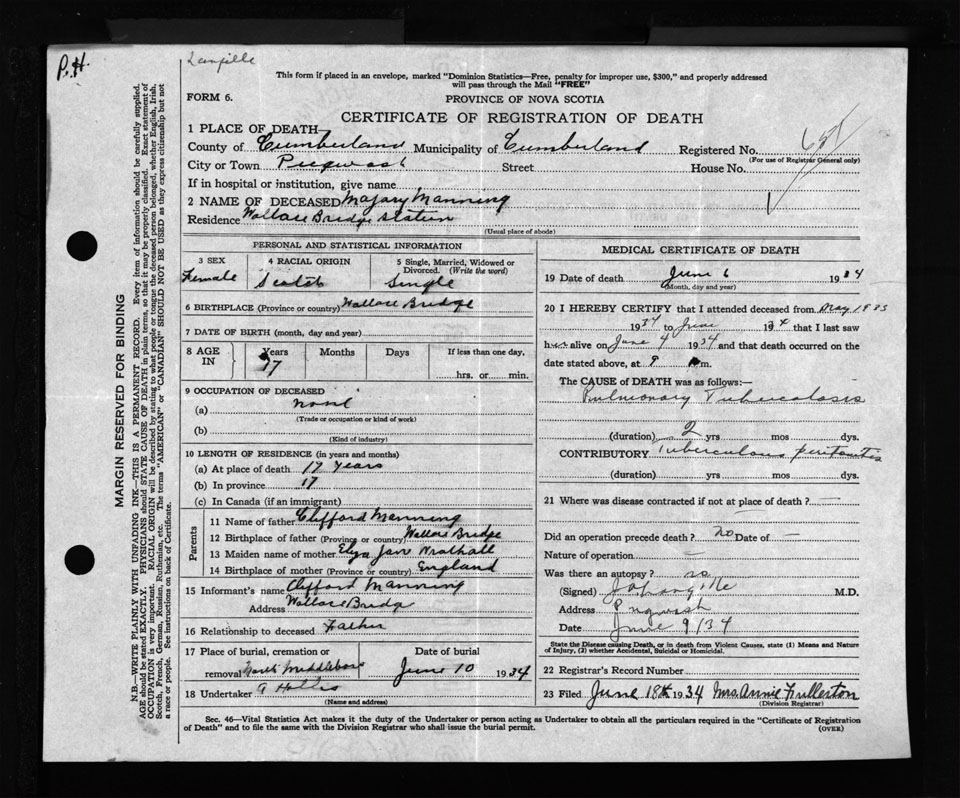 P.H.
This form if placed in an envelope, marked "Dominion Statistics—Free, penalty for improper use, $300," and properly addressed
will pass through the Mail "FREE"
FORM 6.
PROVINCE OF NOVA SCOTIA
CERTIFICATE OF REGISTRATION OF DEATH
1 PLACE OF DEATH
County of Cumberland Municipality of Cumberland Registered No.
(For use of Registrar General only)
City or Town Pugwash Street House No.
If in hospital or institution, give name
2 NAME OF DECEASED Majary Manning
Residence Wallace Bridge Station
(Usual place of abode)
MARGIN RESERVED FOR BINDING
N.B.—WRITE PLAINLY WITH UNFADING INK—THIS IS A PERMANENT RECORD. Every item of information should be carefully supplied.
AGE should be stated EXACTLY. PHYSICIANS should STATE CAUSE OF DEATH in plain terms, so that it may be properly classified. Exact statement of
OCCUPATION is very important. RACIAL ORIGIN will be described by stating to what people or tongue the deceased person belonged, whether English, Irish,
Scotch, French, German, Russian, Ruthenian, etc. The terms "AMERICAN" or "CANADIAN" SHOULD NOT BE USED as they express citizenship but not
a race or people. See instructions on back of Certificate.
PERSONAL AND STATISTICAL INFORMATION
3 SEX
Female
4 RACIAL ORIGIN
Scotch
5 Single, Married, Widowed or
Divorced. (Write the word)
Single
6 BIRTHPLACE (Province or country) Wallace Bridge
7 DATE OF BIRTH (month, day and year)
8 AGE IN Years Months Days If less than one day,
17
hrs. or min.
9 OCCUPATION OF DECEASED
(a) none
(Trade or occupation or kind of work)
(b)
(Kind of industry)
10 LENGTH OF RESIDENCE (in years and months)
(a) At place of death 17 years
(b) In province 17
(c) In Canada (if an immigrant)
Parents
11 Name of father Clifford Manning
12 Birthplace of father (Province or country) Wallace Bridge
13 Maiden name of mother Elya Jan Wrathall
14 Birthplace of mother (Province or country) England
15 Informant's name Clifford Manning
Address Wallace Bridge
16 Relationship to deceased Father
17 Place of burial, cremation or Date of burial
removal North Middleboro June 10 1934
18 Undertaker A Hollis
(Name and address)
MEDICAL CERTIFICATE OF DEATH
19 Date of death June 6 1934
(Month, day and year)
20 I HEREBY CERTIFY that I attended deceased from May
1934 to June 1934 that I last saw
her alive on June 4 1934 and that death occurred on the
date stated above, at 9 m.
The CAUSE OF DEATH was as follows:—
Pulmonary Tuberculosis
(duration) 2 yrs mos dys.
CONTRIBUTORY Tuberculous peritonitis
(duration) yrs. mos dys.
21 Where was disease contracted if not at place of death? —
Did an operation precede death? no Date of —
Nature of operation —
Was there an autopsy? no
(Signed) M.D.
Address Pugwash
Date June 9/34
State the Disease causing Death, or in death from Violent Causes, state (1) Means and Nature
of Injury, (2) whether Accidental, Suicidal or Homicidal.
22 Registrar's Record Number
23 Filed June 18th 1934 Mrs. Annie Fullerton
(Division Registrar)
Sec. 46—Vital Statistics Act makes it the duty of the Undertaker or person acting as Undertaker to obtain all the particulars required in the "Certificate of Registration
of Death" and to file the same with the Division Registrar who shall issue the burial permit.
(OVER)